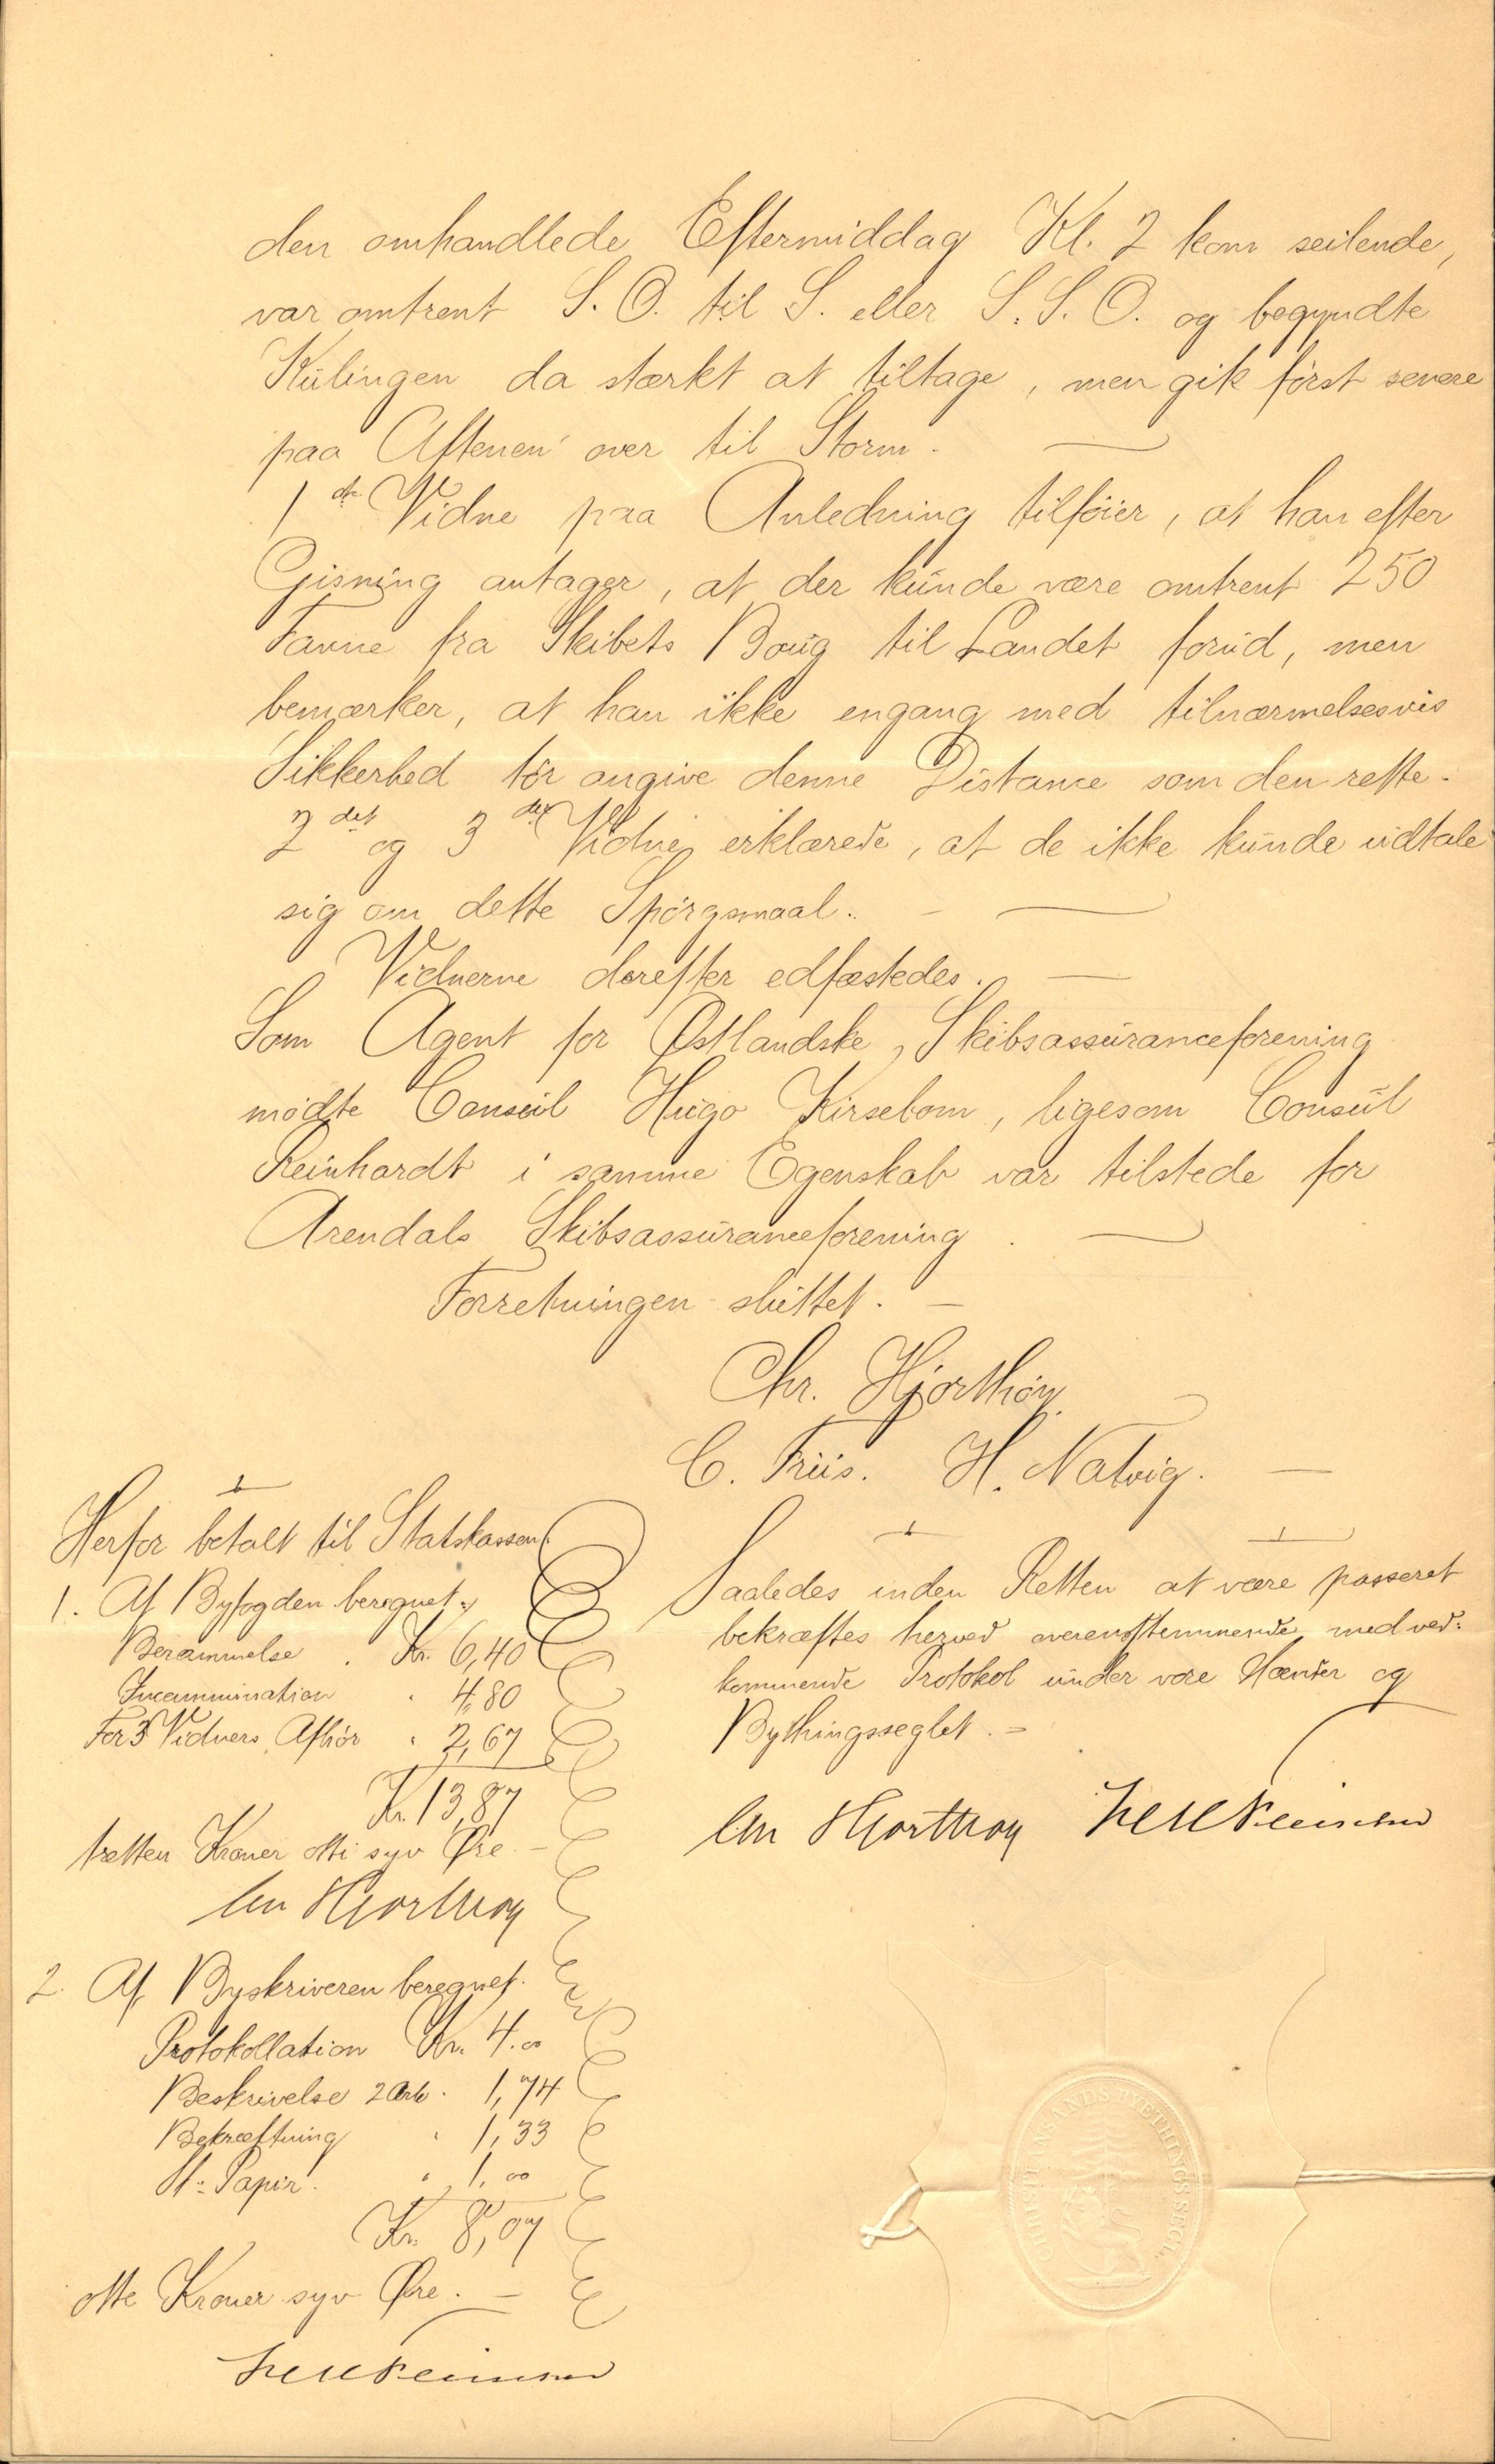 den omhandlede Eftermiddag Kl. 2 kom seilende,
var omtrent S. O. til S. eller S. S. O. og begyndte
Kulingen da stærkt at tiltage, men gik först senere
paa Aftenen over til Storm. —
1ste Vidne paa Anledning tilföier, at han efter
Gisning antager, at der kunde være omtrent 250
Favne fra Skibets Boug til Landet forud, men
bemærker, at han ikke engang med tilnærmelsesvis
Sikkerhed tör angive denne Distance som den rette.
2det og 3die Vidne erklærede, at de ikke kunde udtale
sig om dette Spörgsmaal. —
Vidnerne derefter edfæstedes. —
Som Agent for Østlandske Skibsassuranceforening
mödte Consul Hugo Kirsebom, ligesom Consul
Reinhardt i samme Egenskab var tilstede for
Arendals Skibsassuranceforening. —
Forretningen sluttet. —
Chr. Hjorthöy.
C. Friis. H. Natvig. —
Saaledes inden Retten at være passeret
bekræftes herved overensstemmende med ved-
kommende Protokol under vore Hænder og
Bythingsseglet. —
Chr Hjorthøy
Herfor betalt til Statskassen
1. Af Byfogden beregnet:
Berammelse . Kr. 6,40
Incammination " 4,80
For 3 Vidners Afhör " 2,67
Kr. 13,87
tretten Kroner otti syv Øre —
Chr Hjorthøy
2. Af Byskriveren beregnet.
Protokollation Kr. 4.00
Beskrivelse 2 Ark. 1,74
Bekræftning " 1,33
St. Papir. " 1,00
Kr. 8,07
otte Kroner syv Øre. —
CHRISTIANSANDS BYETHINGS SEGL.